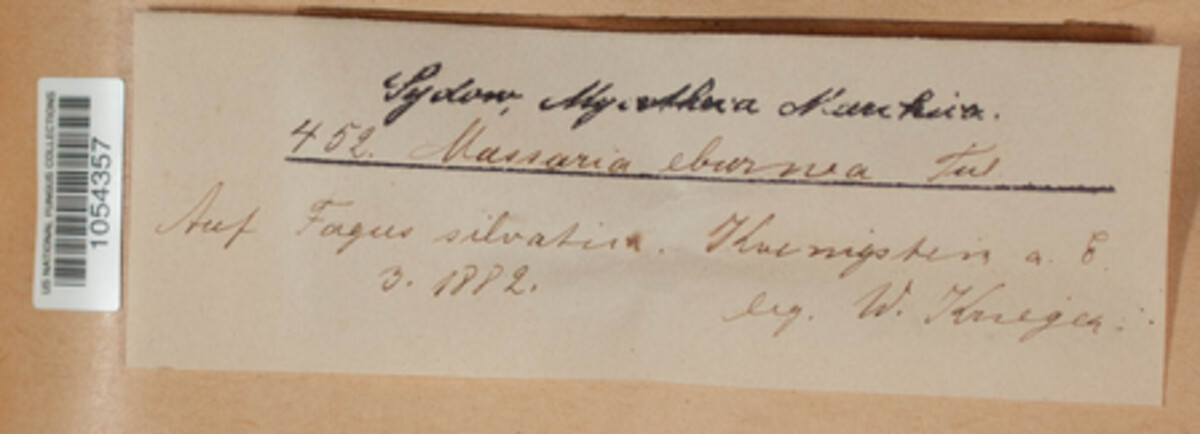 US NATIONAL FUNGUS COLLECTIONS
1054357
Sydow, Mycotheca Marchica.
452. Massaria eburnea Tul
Auf Fagus silvatica. Koenigstein a. E.
3. 1882.
leg. W. Krieger.